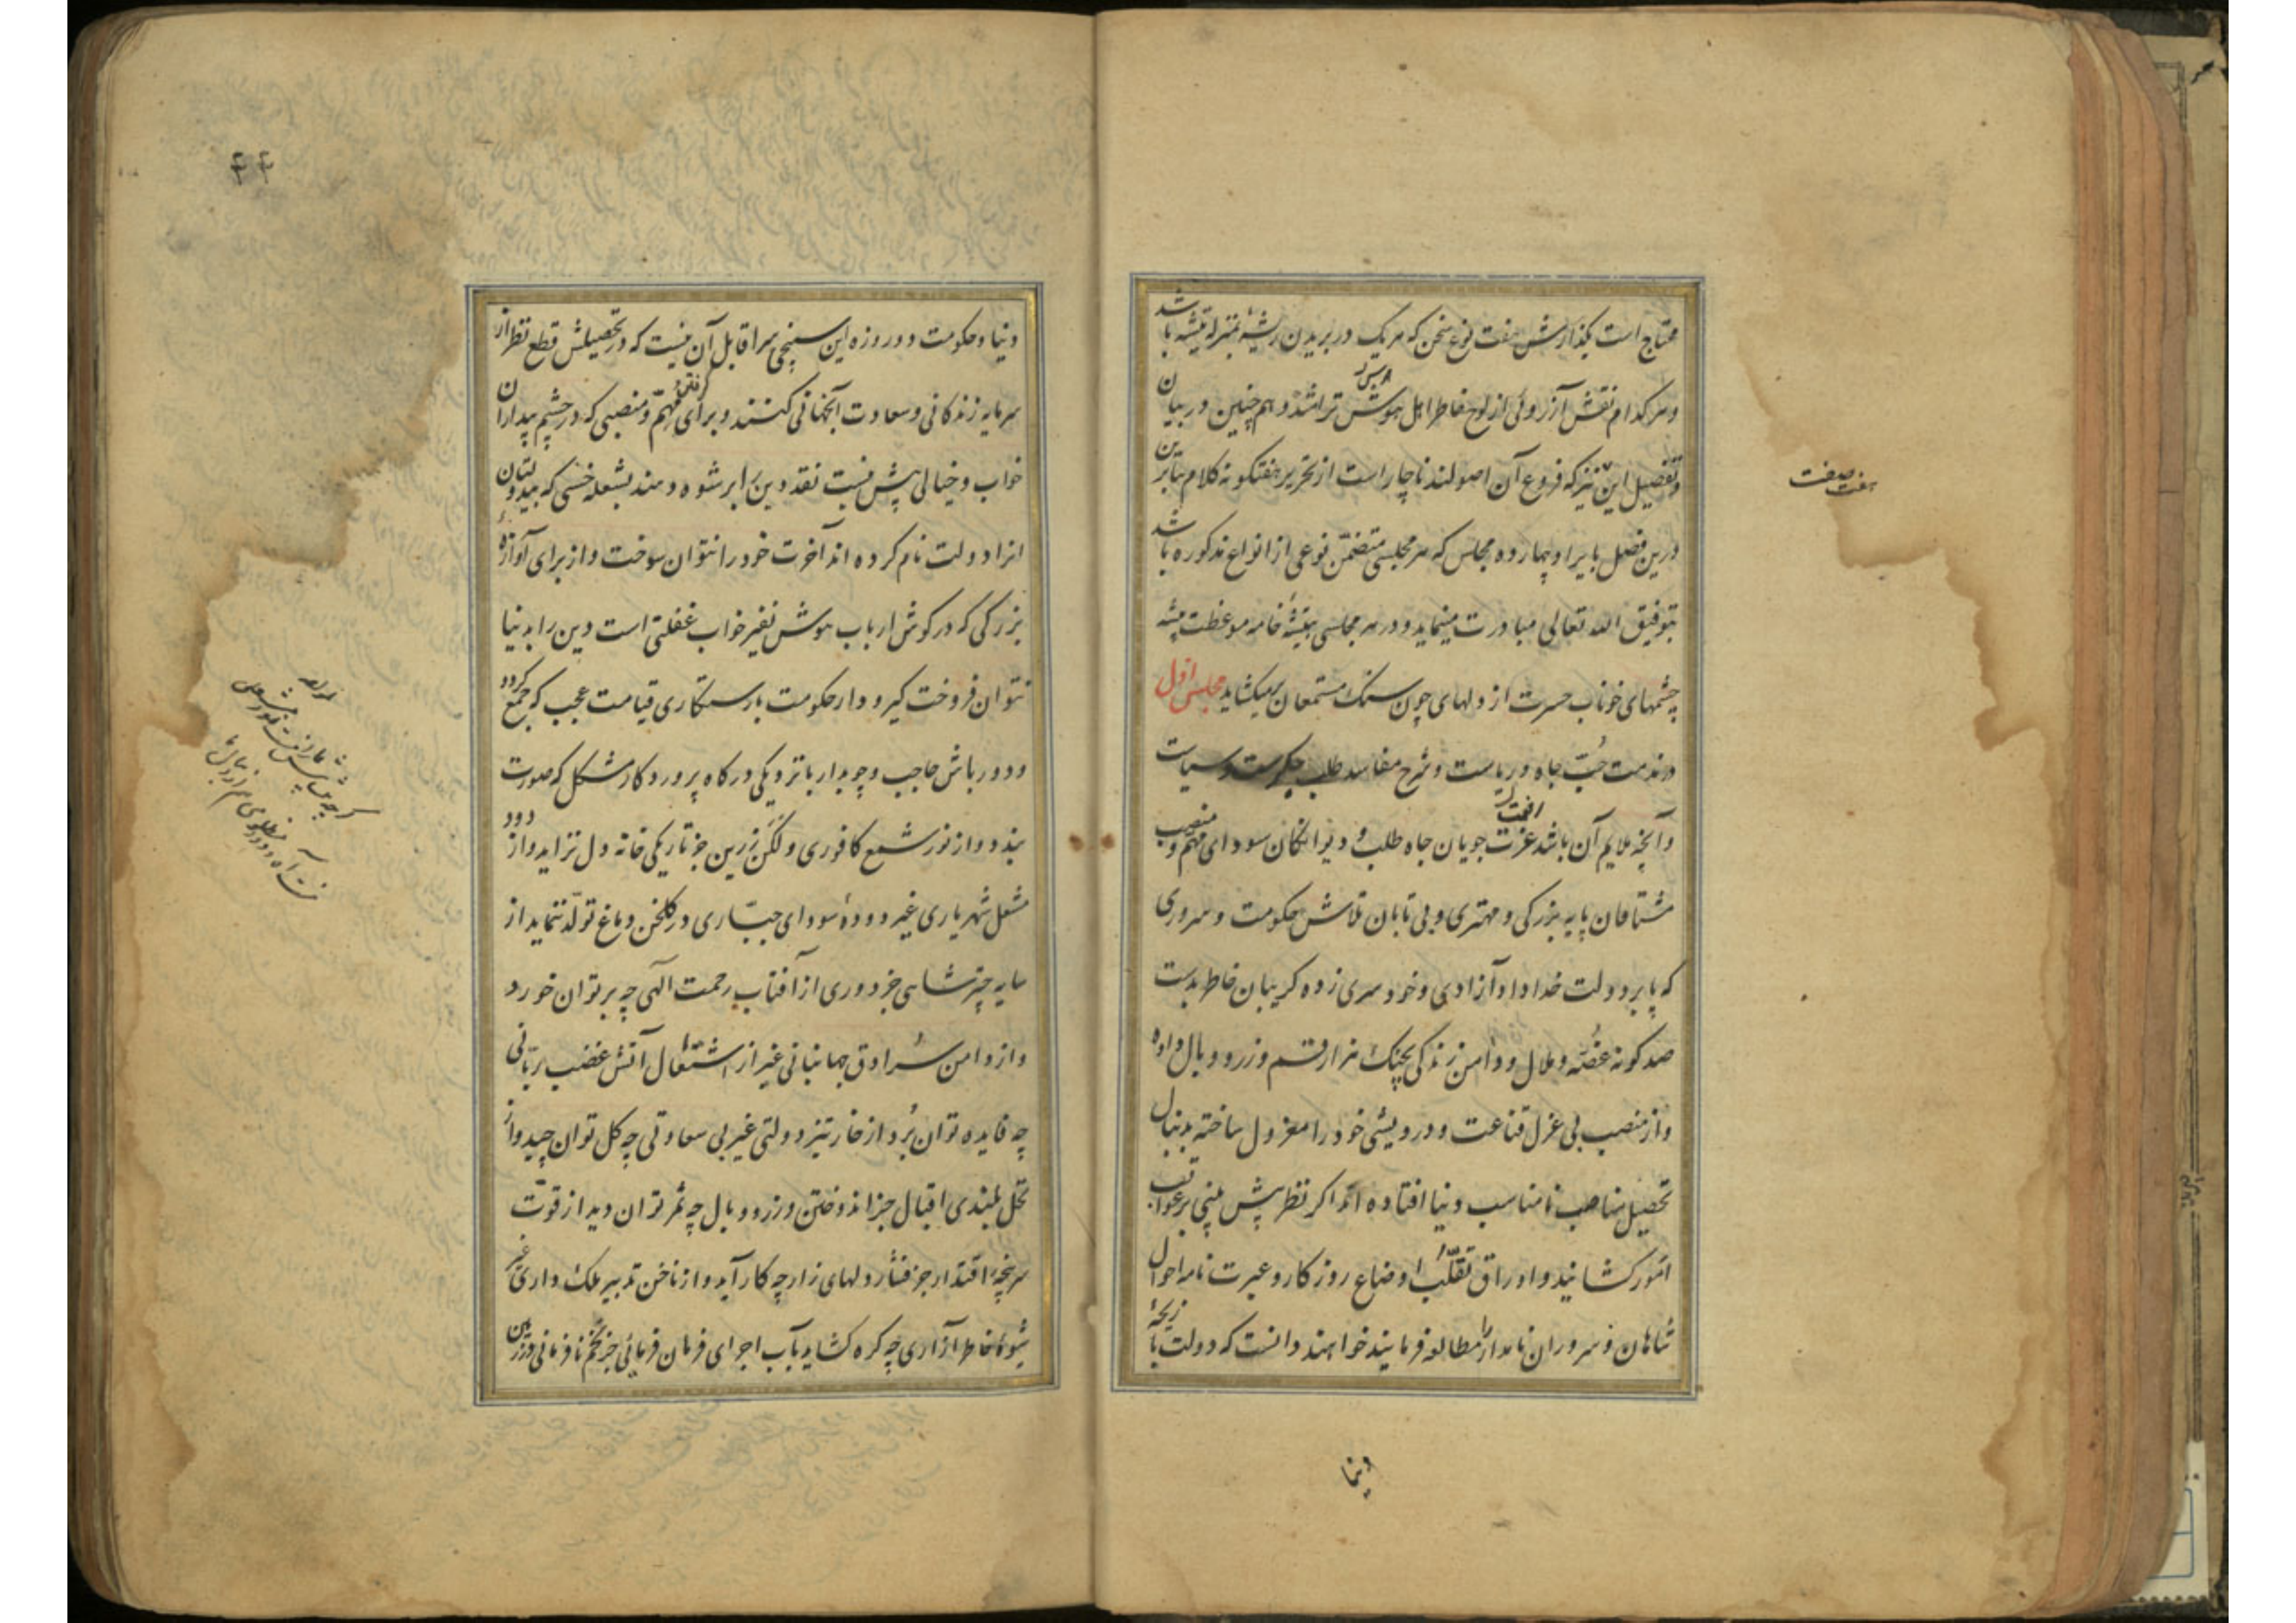 محتاج است بگذارش هفت نوع سخن که هر یک در بریدن ریشهٔ بمنزله تیشه باشد
و هر کدام نقش آرزوئی از لوح خاطر اهل هوش تراشد و هم چنین در بیان
و تفصیل این نیز که فروع آن اصولند ناچار است از تحریر هفتکونه کلام بنابرین
درین فصل بایراد چهارده مجلس که هر مجلسی متضمّن نوعی از انواع مذکوره باشد
بتوفیق الله تعالی مبادرت مینماید و در هر مجلسی بتیشهٔ خامه موعظت پیشه
چشمهای خوناب حسرت از دلهای چون سنک مستمعان میکشاید مجلس اول
در مذمت حُبّ جاه و ریاست و شرح مفاسد طلب حکومت و سیاست
و آنچه ملایم آن باشد عزّت جویان جاه طلب و دیوانکان سودای مهمّ و منصب
مشتاقان پایه بزرکی و مهتری و بی تابان تلاش حکومت و سروری
که پا بر دولت خداداد آزادی و خودسری زده کریبان خاطر بدست
صد کونه غصّه و ملال و دامن زندکی بچنک هزار قسم وزر و وبال داده
و از منصب بی عزل قناعت و درویشی خود را معزول ساخته بدنبال
تحصیل مناصب نامناسب دنیا افتاده اند اکر نظر پیش بینی بر عواقب
امور کشانید و اوراق تقلّب اوضاع روزکار و عبرت نامه احوال
شاهان و سروران نامدار را مطالعه فرمایند خواهند دانست که دولت بازیچهٔ
دنیا
هفت صفت
دنیا و حکومت دو روزه این سپنجی سرا قابل آن نیست که در تحصیلش قطع نظر از
سرمایه زندکانی و سعادت آنجهانی کنند و برای گرفتن مهمّ و منصبی که در چشم بیداران
خواب و خیالی پیش نیست نقد دین برابر شوه دهند بشعله خسی که بیدولتان
انرا دولت نام کرده اند آخرت خود را نتوان سوخت و از برای آوازهٔ
بزرکی که در کوش ارباب هوش نفیر خواب غفلتی است دین را بدنیا
نتوان فروخت کیر و دار حکومت با رستکاری قیامت عجب که جمع کردد
و دورباش حاجب و چوبدار با نزدیکی درکاه پروردکار مشکل که صورت
بندد و از نور شمع کافوری و لکن زرین جز تاریکی خانه دل نزاید و از دود
مشعل شهریاری غیر دودهٔ سودای جبّاری در کلخن دماغ تولّد ننماید از
سایه چتر شاهی جز دوری از آفتاب رحمت الهی چه بر توان خورد
و از دامن سرادق جهانبانی غیر از اشتعال آتش غضب ربّانی
چه فایده توان بُرد از خار تیز دولتی غیر بی سعادتی چه کل توان چید و از
نخل بلندی اقبال جز اندوختن وزر و وبال چه ثمر توان دید از قوّت
سرپنجهٔ اقتدار جز فشار دلهای زار چه کار آید و از ناخن تدبیر ملک داری غیر
شیوهٔ خاطر آزاری چه کره کشاید بآب اجرای فرمان فرمائی جز تخم نافرمانی در زمین